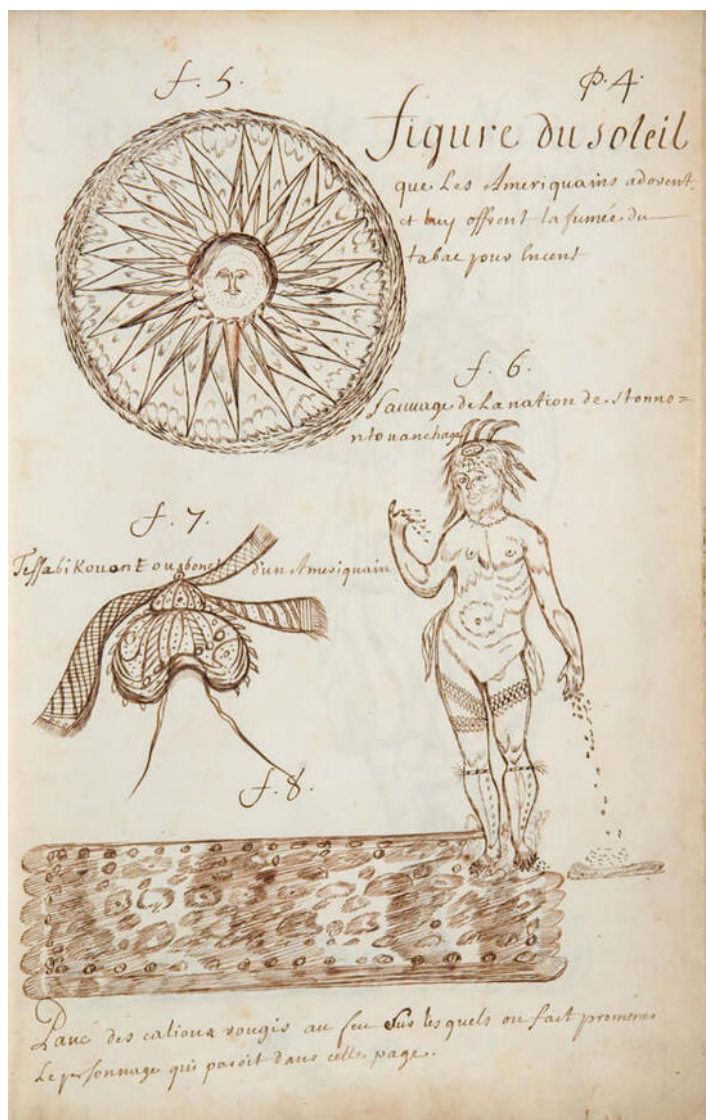 f. 5.
P. 4.
figure du soleil
que Les Ameriquains adorent
et luy offrent la fumée du
tabac pour Encent
f. 6.
Sauuage de La nation de. Honno=
ntouanchaga
f. 7.
Tessabikouon Eou bonet d'un Ameriquain.
f. 8.
Paué des calioux rougis au feu Sur les quels on fait promener
Le personnage qui paroit dans cette page.